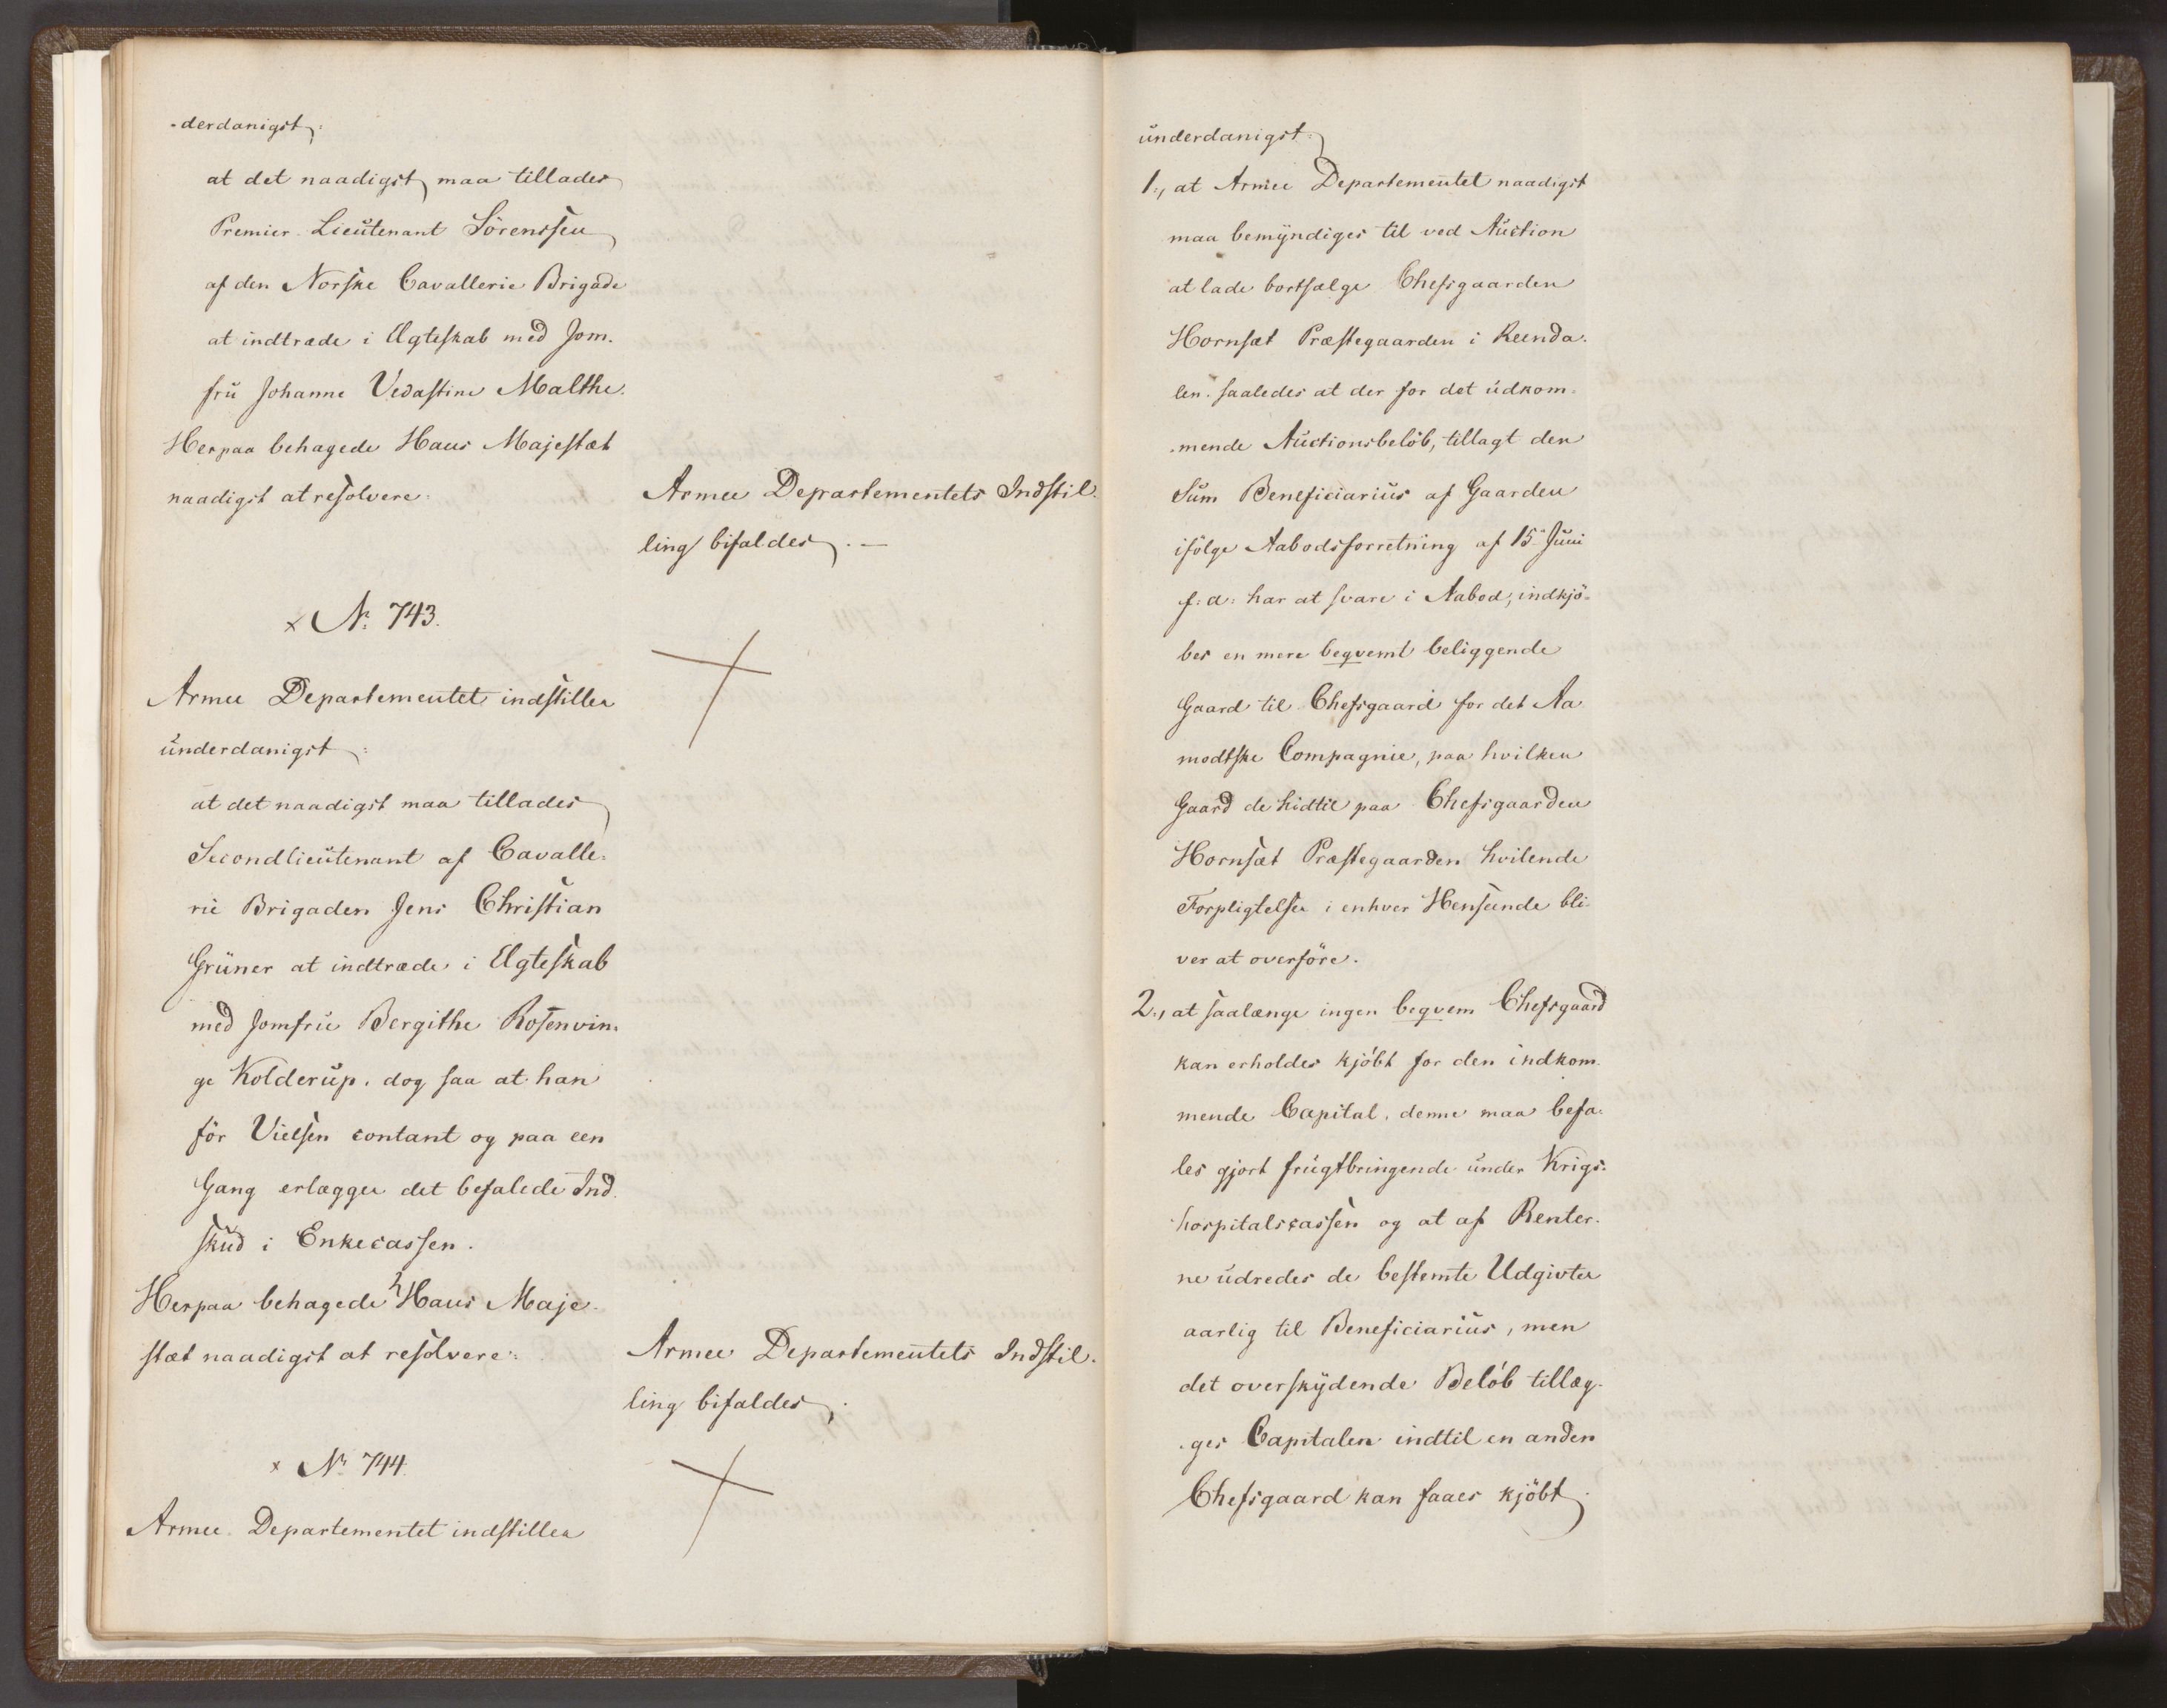 -derdanigst:
at det naadigst maa tillades
Premier Lieutenant Sörenssen
af den Norske Cavallerie Brigade
at indtræde i Ægteskab med Jom-
fru Johanne Vedastine Malthe.
Herpaa behagede Hans Majestæt
naadigst at resolvere:
Armee Departementets Indstil-
ling bifaldes. —
x No. 743.
Armee Departementet indstiller
underdanigst:
at det naadigst maa tillades
Secondlieutenant af Cavalle-
rie Brigaden Jens Christian
Grüner at indtræde i Ægteskab
med Jomfrue Bergithe Rosenvin-
ge Kolderup, dog saa at han
för Vielsen contant og paa een
Gang erlægger det befalede Ind-
skud i Enkecassen.
Herpaa behagede Hans Maje-
stæt naadigst at resolvere:
Armee Departementets Indstil-
ling bifaldes.
x No 744.
Armee Departementet indstiller
underdanigst:
1., at Armee Departementet naadigst
maa bemyndiges til ved Auction
at lade bortsælge Chefsgaarden
Hornsæt Præstegaarden i Reenda-
len saaledes at der for det udkom-
mende Auctionsbelöb, tillagt den
Sum Beneficiarius af Gaarden
ifölge Aabodsforretning af 15de Juni
f: a: har at svare i Aabod, indkjö-
bes en mere beqvemt beliggende
Gaard til Chefsgaard for det Aa-
modtske Compagnie, paa hvilken
Gaard de hidtil paa Chefsgaarden
Hornsæt Præstegaarden hvilende
Forpligtelser i enhver Henseende bli-
ver at overföre.
2., at saalænge ingen beqvem Chefsgaard
kan erholdes kjöbt for den indkom-
mende Capital, denne maa befa-
les gjort frugtbringende under Krigs-
hospitalscassen og at af Renter-
ne udredes de bestemte Udgivter
aarlig til Beneficiarius, men
det overskydende Belöb tillæg-
ges Capitalen indtil en anden
Chefsgaard kan faaes kjöbt.